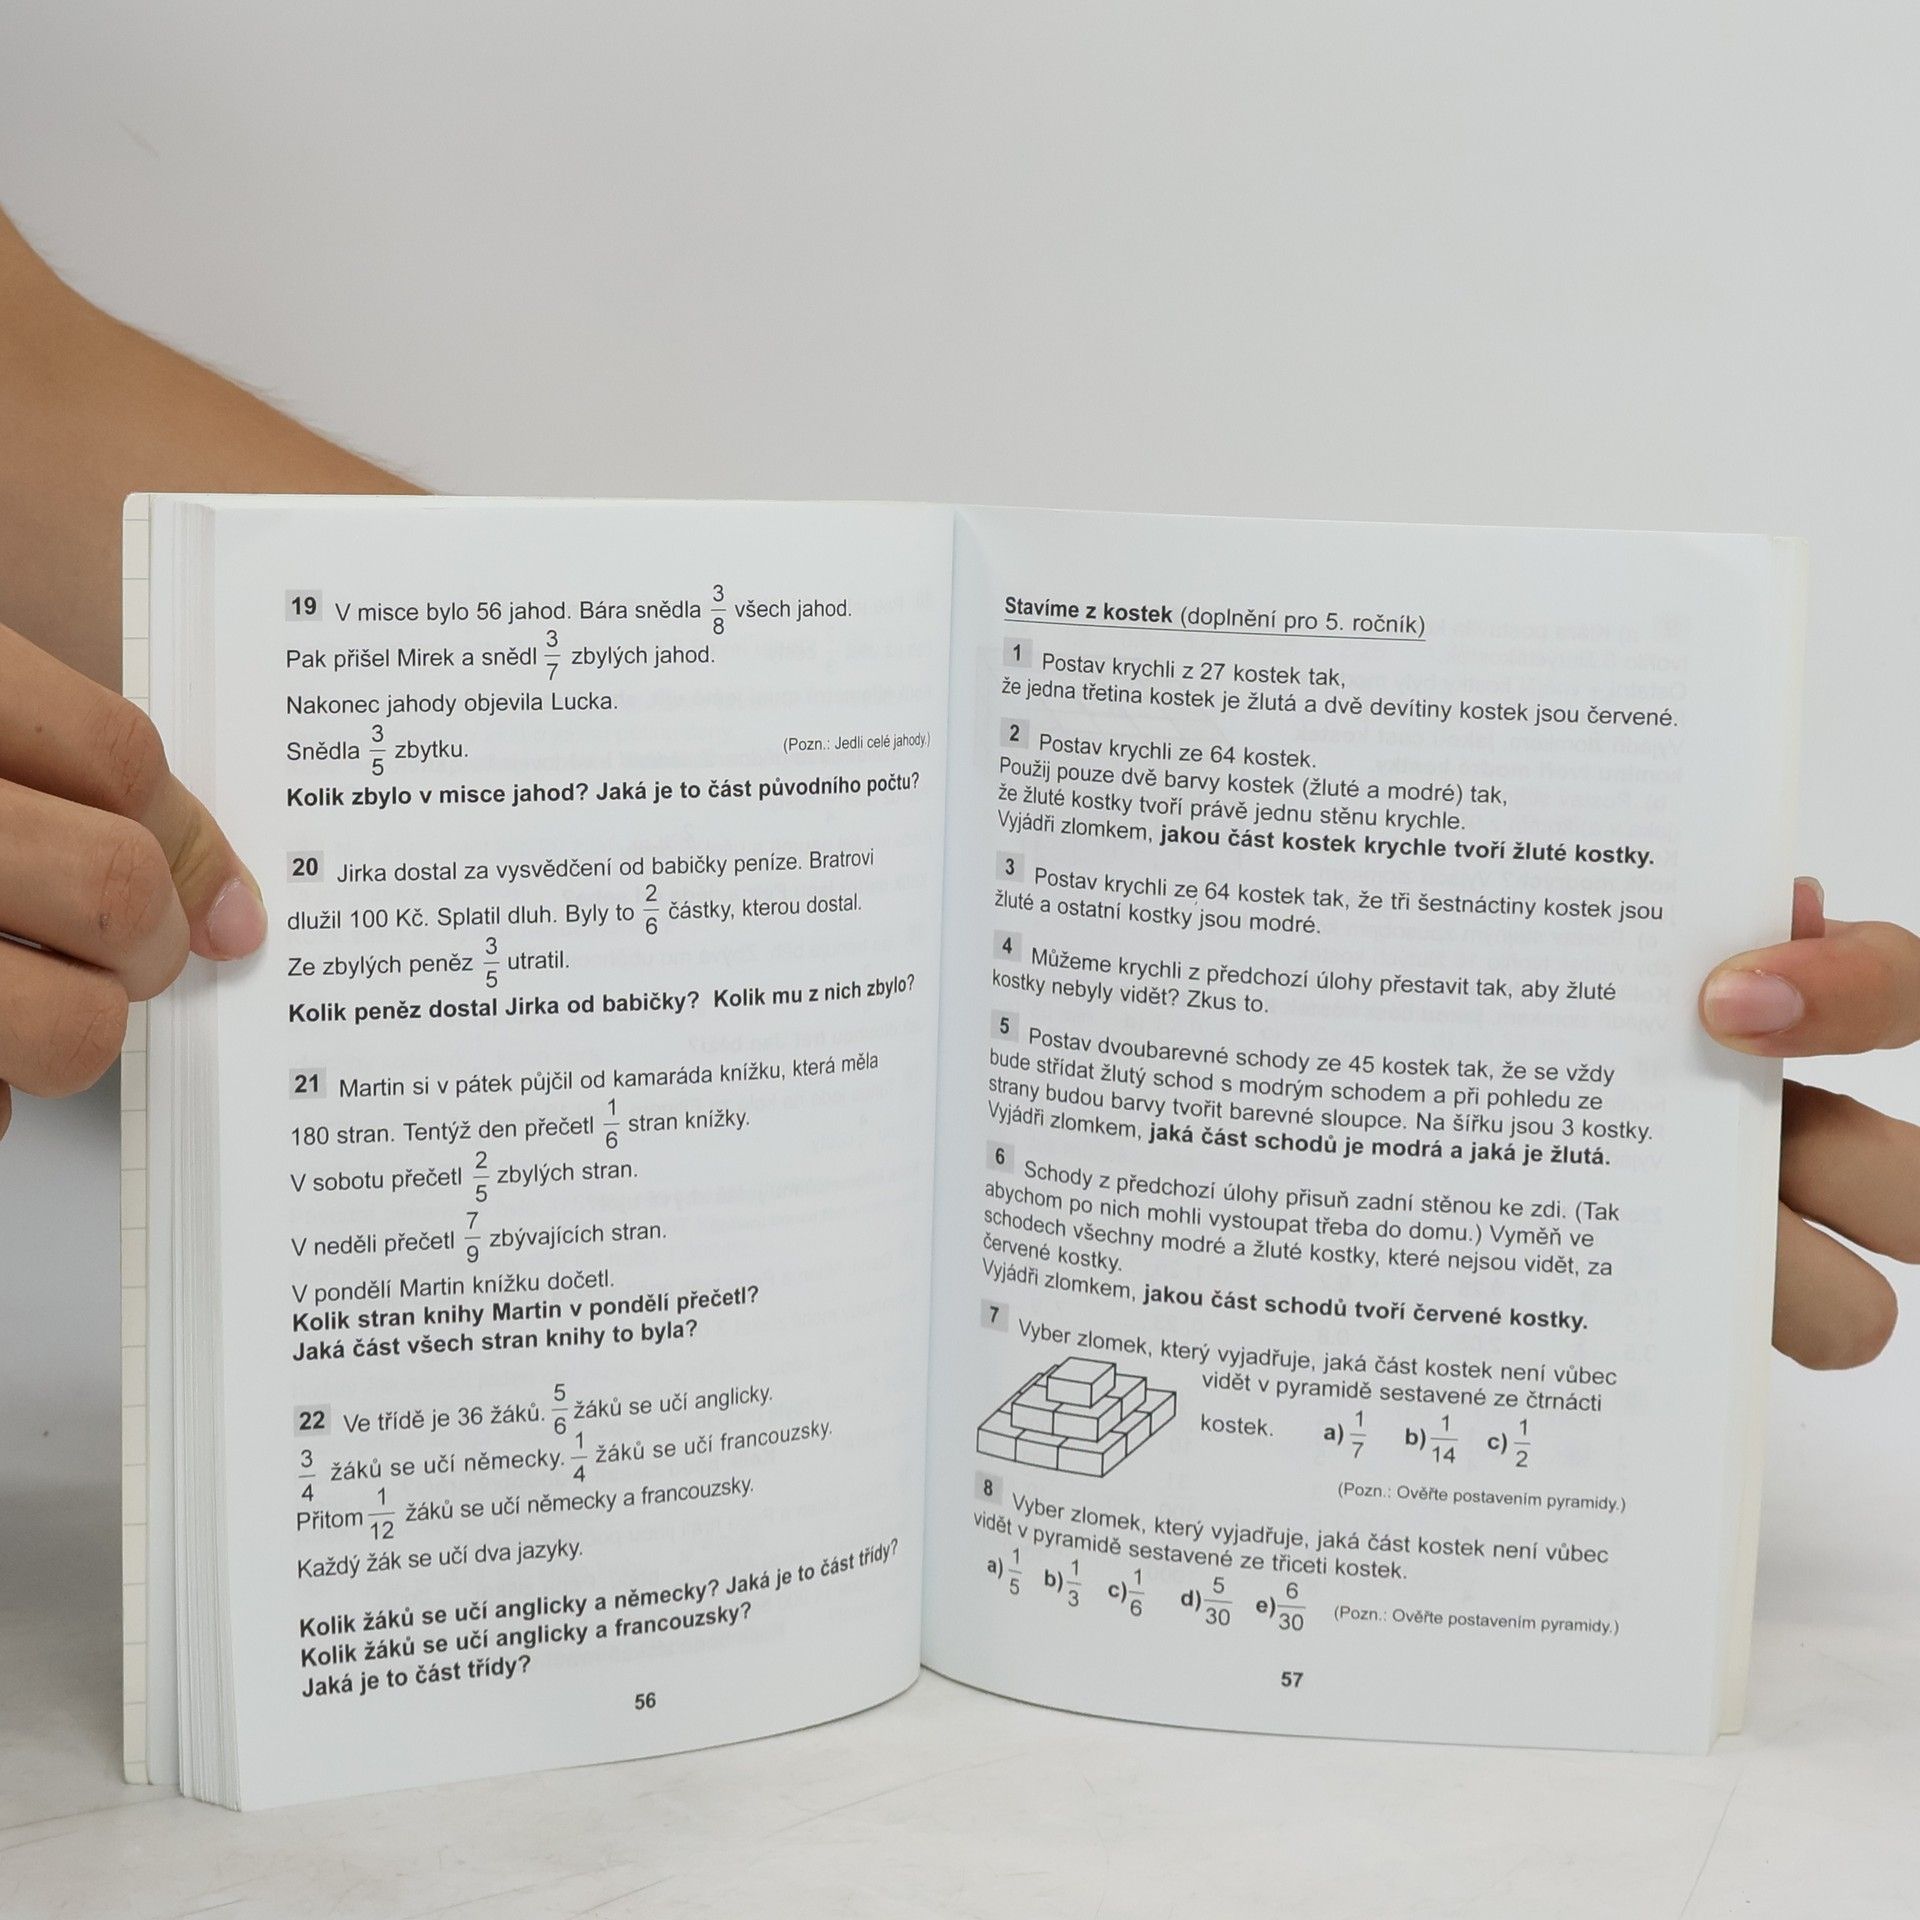 19 V misce bylo 56 jahod. Bára snědla 3/8 všech jahod.
Pak přišel Mirek a snědl 3/7 zbylých jahod.
Nakonec jahody objevila Lucka.
Snědla 3/5 zbytku. (Pozn.: Jedli celé jahody.)
Kolik zbylo v misce jahod? Jaká je to část původního počtu?
20 Jirka dostal za vysvědčení od babičky peníze. Bratrovi
dlužil 100 Kč. Splatil dluh. Byly to 2/6 částky, kterou dostal.
Ze zbylých peněz 3/5 utratil.
Kolik peněz dostal Jirka od babičky? Kolik mu z nich zbylo?
21 Martin si v pátek půjčil od kamaráda knížku, která měla
180 stran. Tentýž den přečetl 1/6 stran knížky.
V sobotu přečetl 2/5 zbylých stran.
V neděli přečetl 7/9 zbývajících stran.
V pondělí Martin knížku dočetl.
Kolik stran knihy Martin v pondělí přečetl?
Jaká část všech stran knihy to byla?
22 Ve třídě je 36 žáků. 5/6 žáků se učí anglicky.
3/4 žáků se učí německy. 1/4 žáků se učí francouzsky.
Přitom 1/12 žáků se učí německy a francouzsky.
Každý žák se učí dva jazyky.
Kolik žáků se učí anglicky a německy? Jaká je to část třídy?
Kolik žáků se učí anglicky a francouzsky?
Jaká je to část třídy?
56
Stavíme z kostek (doplnění pro 5. ročník)
1 Postav krychli z 27 kostek tak,
že jedna třetina kostek je žlutá a dvě devítiny kostek jsou červené.
2 Postav krychli ze 64 kostek.
Použij pouze dvě barvy kostek (žluté a modré) tak,
že žluté kostky tvoří právě jednu stěnu krychle.
Vyjádři zlomkem, jakou část kostek krychle tvoří žluté kostky.
3 Postav krychli ze 64 kostek tak, že tři šestnáctiny kostek jsou
žluté a ostatní kostky jsou modré.
4 Můžeme krychli z předchozí úlohy přestavit tak, aby žluté
kostky nebyly vidět? Zkus to.
5 Postav dvoubarevné schody ze 45 kostek tak, že se vždy
bude střídat žlutý schod s modrým schodem a při pohledu ze
strany budou barvy tvořit barevné sloupce. Na šířku jsou 3 kostky.
Vyjádři zlomkem, jaká část schodů je modrá a jaká je žlutá.
6 Schody z předchozí úlohy přisuň zadní stěnou ke zdi. (Tak
abychom po nich mohli vystoupat třeba do domu.) Vyměň ve
schodech všechny modré a žluté kostky, které nejsou vidět, za
červené kostky.
Vyjádři zlomkem, jakou část schodů tvoří červené kostky.
7 Vyber zlomek, který vyjadřuje, jaká část kostek není vůbec
vidět v pyramidě sestavené ze čtrnácti
kostek. a) 1/7 b) 1/14 c) 1/2
(Pozn.: Ověřte postavením pyramidy.)
8 Vyber zlomek, který vyjadřuje, jaká část kostek není vůbec
vidět v pyramidě sestavené ze třiceti kostek.
a) 1/5 b) 1/3 c) 1/6 d) 5/30 e) 6/30 (Pozn.: Ověřte postavením pyramidy.)
57